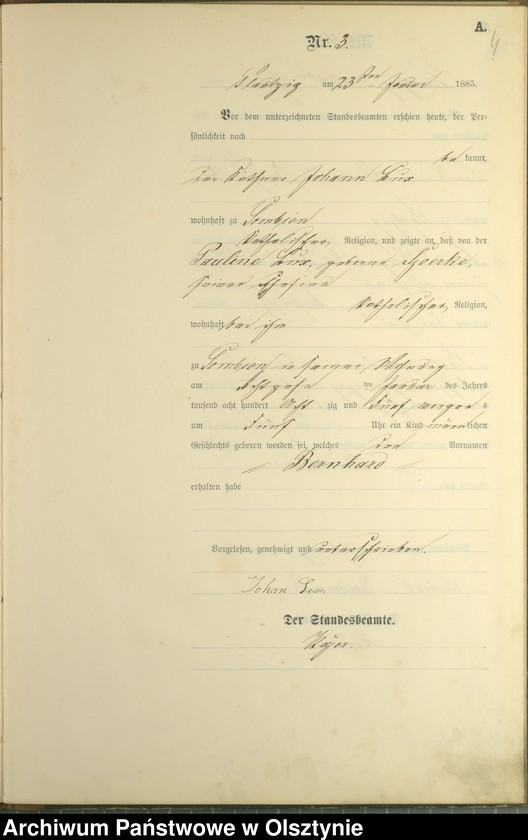 A.
4
Nr. 3.
am 23ten Januar 1885.
Vor dem unterzeichneten Standesbeamten erschien heute, der Per-
sönlichkeit nach
be kannt,
der Käthner Johann Lux
wohnhaft zu Sombien
katholischer Religion, und zeigte an, daß von der
Pauline Lux, geborene
seiner Ehefrau
katholischer Religion,
wohnhaft bei ihm
zu Sombien in seiner Wohnung
am Achtzehn ten Januar des Jahres
tausend acht hundert Acht zig und Fünf s
um Fünf Uhr ein Kind männlichen
Geschlechts geboren worden sei, welches den Vornamen
Bernhard
erhalten habe
Vorgelesen, genehmigt und unterschrieben.
Johan Lux
Der Standesbeamte.
Archiwum Państwowe w Olsztynie